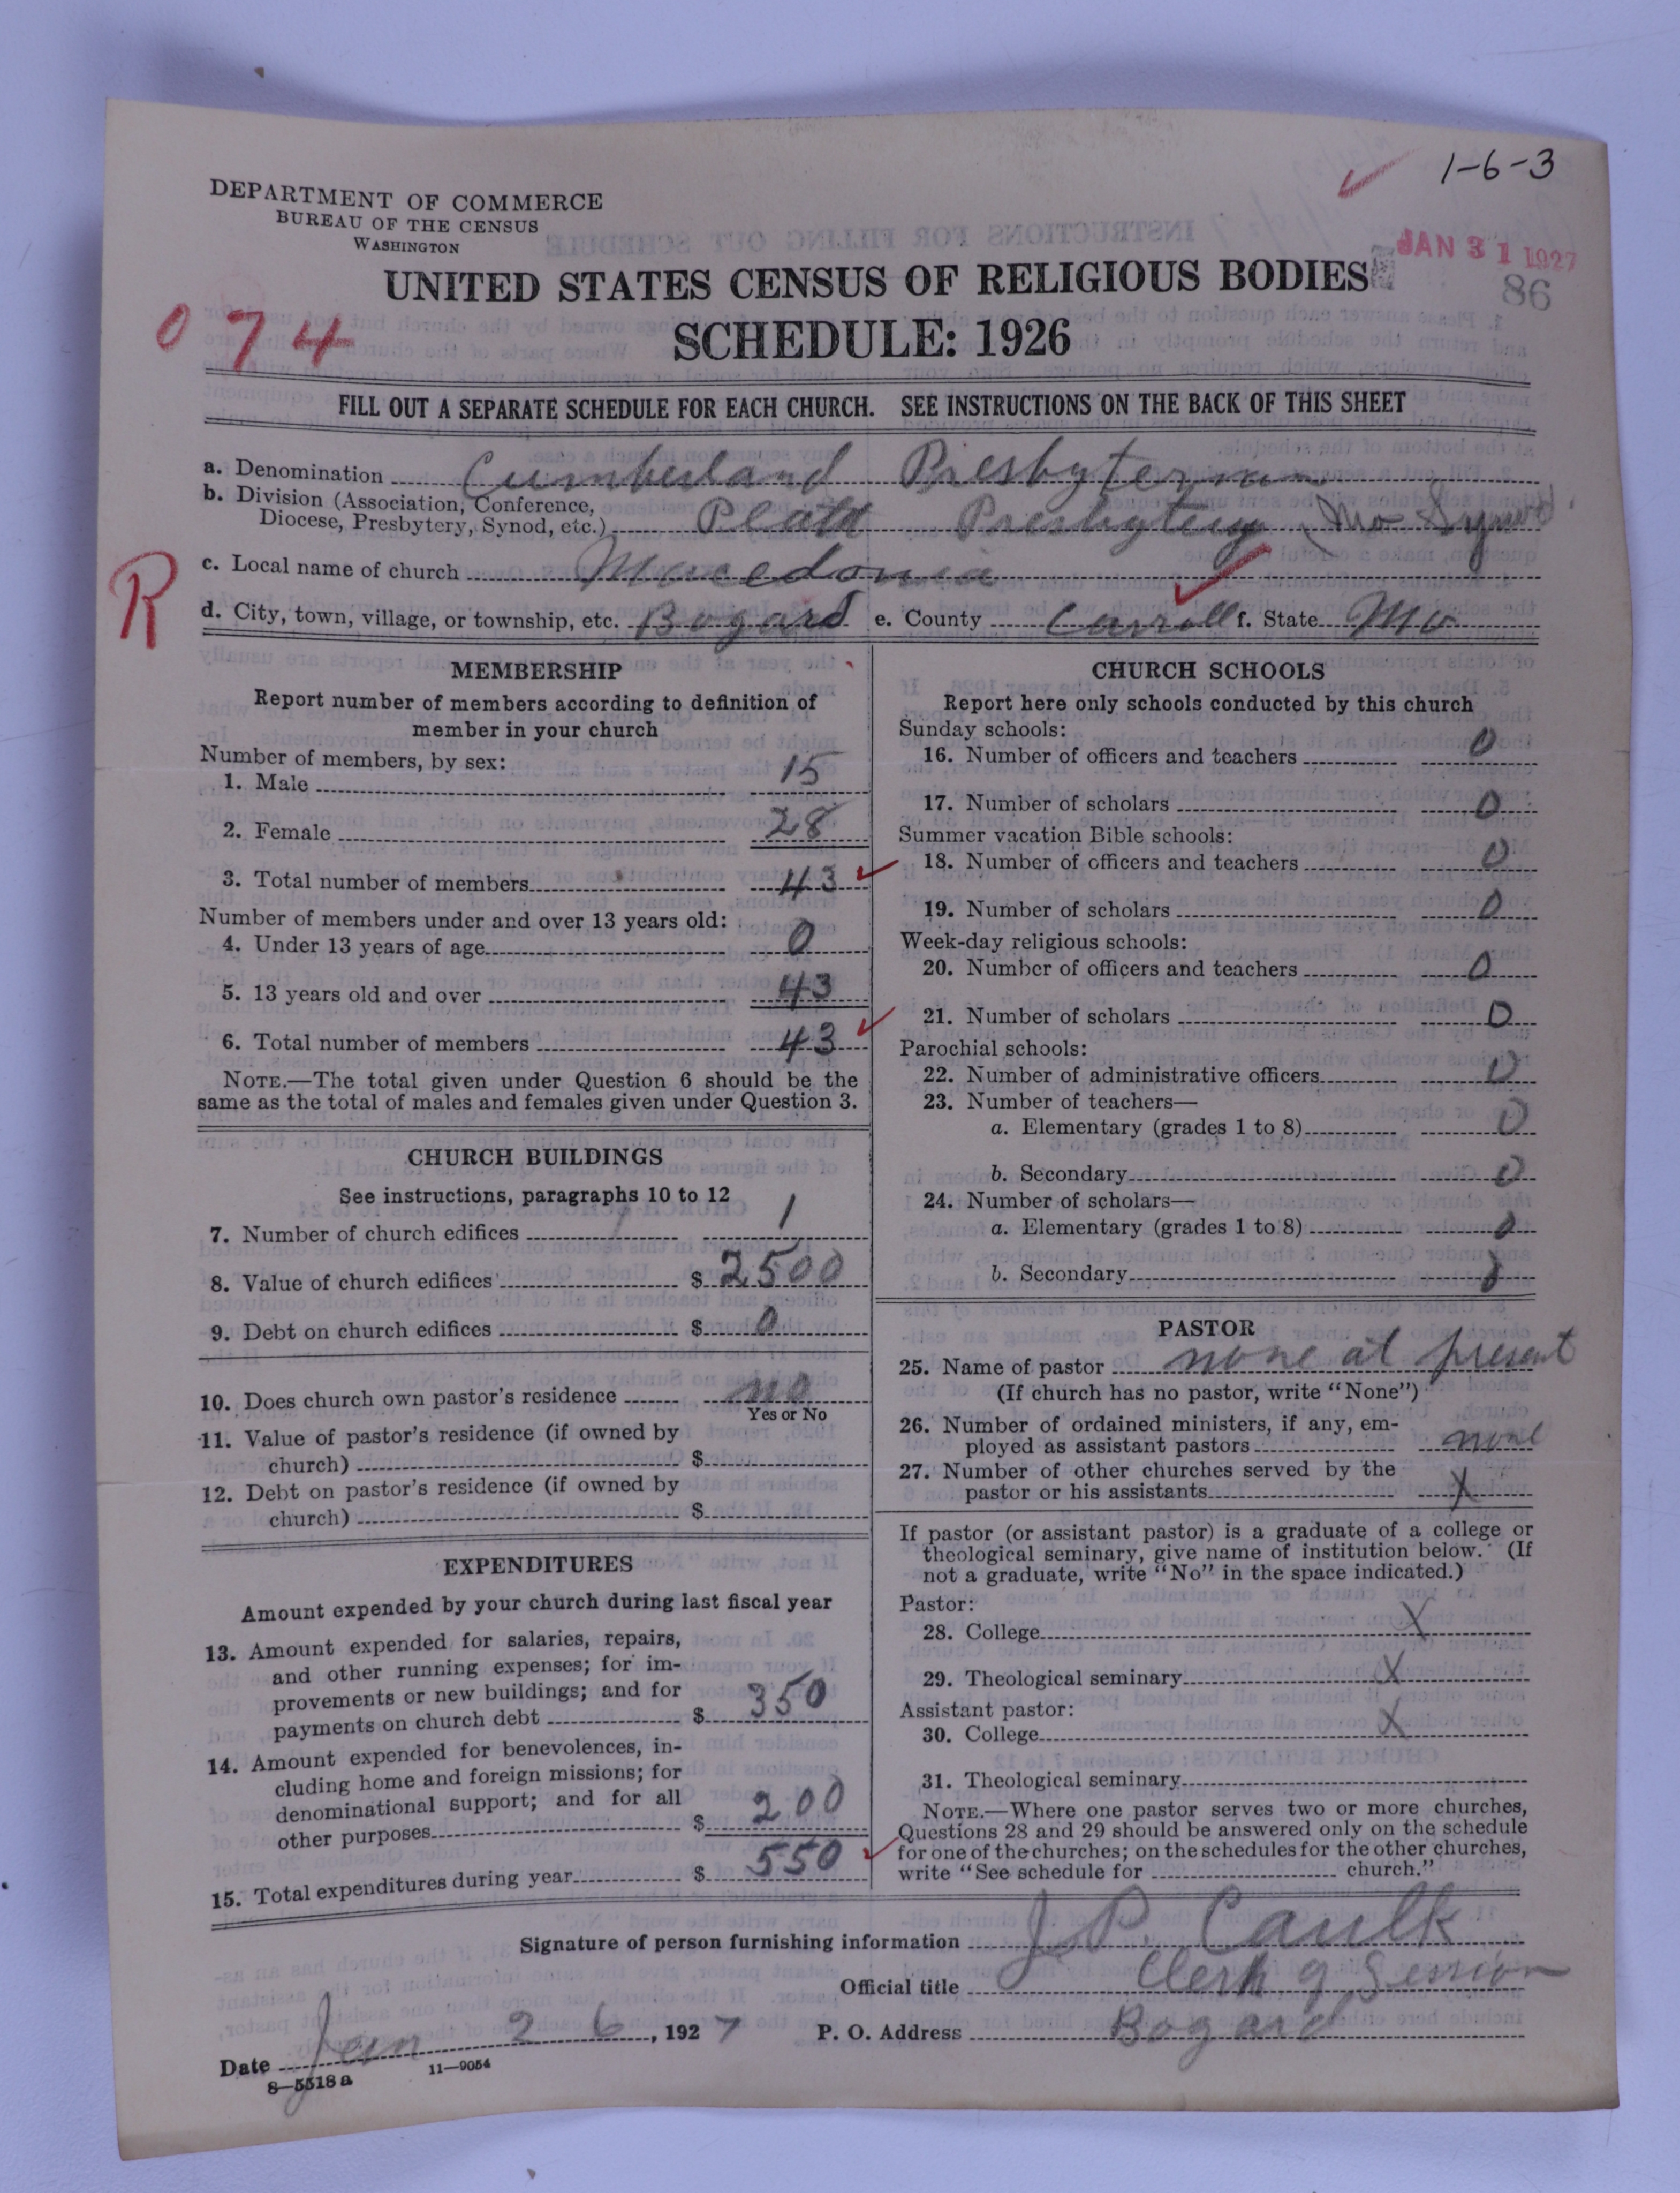 1-6-3
DEPARTMENT OF COMMERCE
BUREAU OF THE CENSUS
WASHINGTON
JAN 31 1927
86
UNITED STATES CENSUS OF RELIGIOUS BODIES
074
SCHEDULE: 1926
FILL OUT A SEPARATE SCHEDULE FOR EACH CHURCH. SEE INSTRUCTIONS ON THE BACK OF THIS SHEET
a. Denomination Cumberland Presbyterian
b. Division (Association, Conference,
Diocese, Presbytery, Synod, etc.) Platt Presbytery, Mo Synod
R
c. Local name of church Macedonia
d. City, town, village, or township, etc. Bogard e. County Carroll f. State Mo
MEMBERSHIP
Report number of members according to definition of
member in your church
Number of members, by sex:
1. Male 15
2. Female 28
3. Total number of members 43
Number of members under and over 13 years old:
4. Under 13 years of age 0
5. 13 years old and over 43
6. Total number of members 43
NOTE.—The total given under Question 6 should be the
same as the total of males and females given under Question 3.
CHURCH BUILDINGS
See instructions, paragraphs 10 to 12
7. Number of church edifices 1
8. Value of church edifices $ 2500
9. Debt on church edifices $ 0
10. Does church own pastor's residence no
Yes or No
11. Value of pastor's residence (if owned by
church) $
12. Debt on pastor's residence (if owned by
church) $
EXPENDITURES
Amount expended by your church during last fiscal year
13. Amount expended for salaries, repairs,
and other running expenses; for im-
provements or new buildings; and for
payments on church debt $ 350
14. Amount expended for benevolences, in-
cluding home and foreign missions; for
denominational support; and for all
other purposes $ 200
15. Total expenditures during year $ 550
CHURCH SCHOOLS
Report here only schools conducted by this church
Sunday schools:
16. Number of officers and teachers 0
17. Number of scholars 0
Summer vacation Bible schools:
18. Number of officers and teachers 0
19. Number of scholars 0
Week-day religious schools:
20. Number of officers and teachers 0
21. Number of scholars 0
Parochial schools:
22. Number of administrative officers 0
23. Number of teachers—
a. Elementary (grades 1 to 8) 0
b. Secondary 0
24. Number of scholars—
a. Elementary (grades 1 to 8) 0
b. Secondary 0
PASTOR
25. Name of pastor none at present
(If church has no pastor, write "None")
26. Number of ordained ministers, if any, em-
ployed as assistant pastors none
27. Number of other churches served by the
pastor or his assistants X
If pastor (or assistant pastor) is a graduate of a college or
theological seminary, give name of institution below. (If
not a graduate, write "No" in the space indicated.)
Pastor:
28. College X
29. Theological seminary X
Assistant pastor:
30. College X
31. Theological seminary
NOTE.—Where one pastor serves two or more churches,
Questions 28 and 29 should be answered only on the schedule
for one of the churches; on the schedules for the other churches,
write "See schedule for church."
Signature of person furnishing information J. P. Caulk
Official title Clerk of Session
Date Jan 26, 1927 P. O. Address Bogard
8—5518 a 11—9054